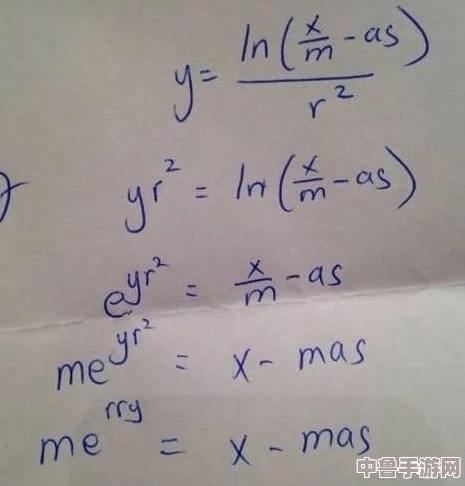 y = ln(x/m - as) / r²
yr² = ln(x/m - as)
e^yr² = x/m - as
me^yr² = x - mas
me^rry = x - mas
中鲁手游网